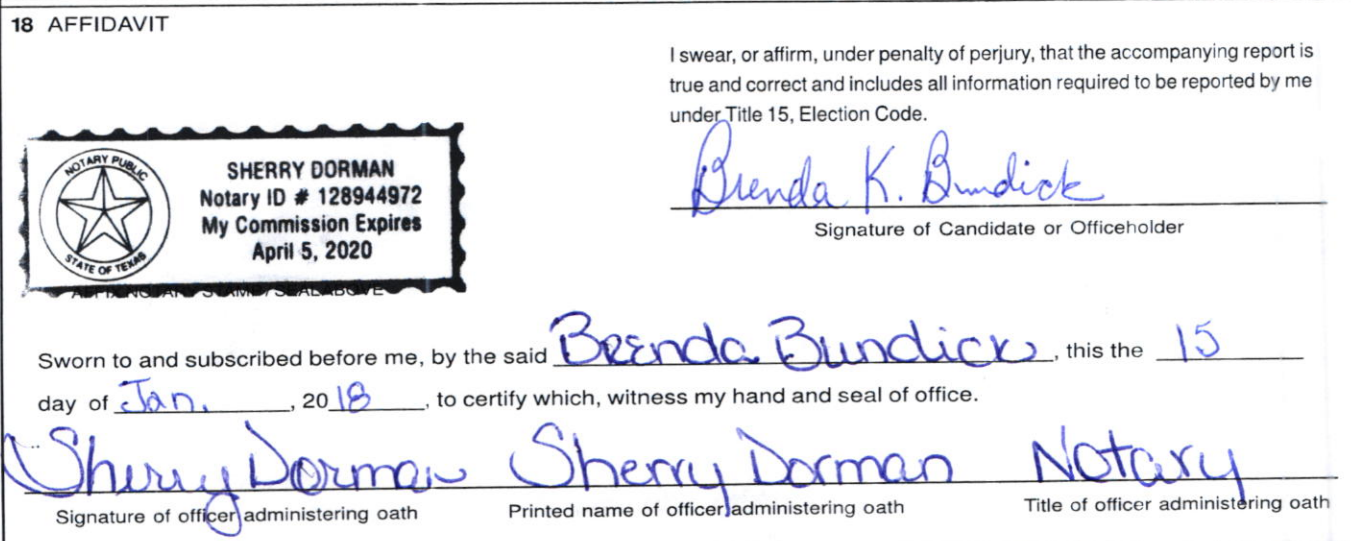 18 AFFIDAVIT
I swear, or affirm, under penalty of perjury, that the accompanying report is
true and correct and includes all information required to be reported by me
under Title 15, Election Code.
NOTARY PUBLIC
STATE OF TEXAS
SHERRY DORMAN
Notary ID # 128944972
My Commission Expires
April 5, 2020
Brenda K. Bundick
Signature of Candidate or Officeholder
AFFIX NOTARY STAMP / SEAL ABOVE
Sworn to and subscribed before me, by the said Brenda Bundick, this the 15
day of Jan., 2018, to certify which, witness my hand and seal of office.
Sherry Dorman Sherry Dorman Notary
Signature of officer administering oath Printed name of officer administering oath Title of officer administering oath